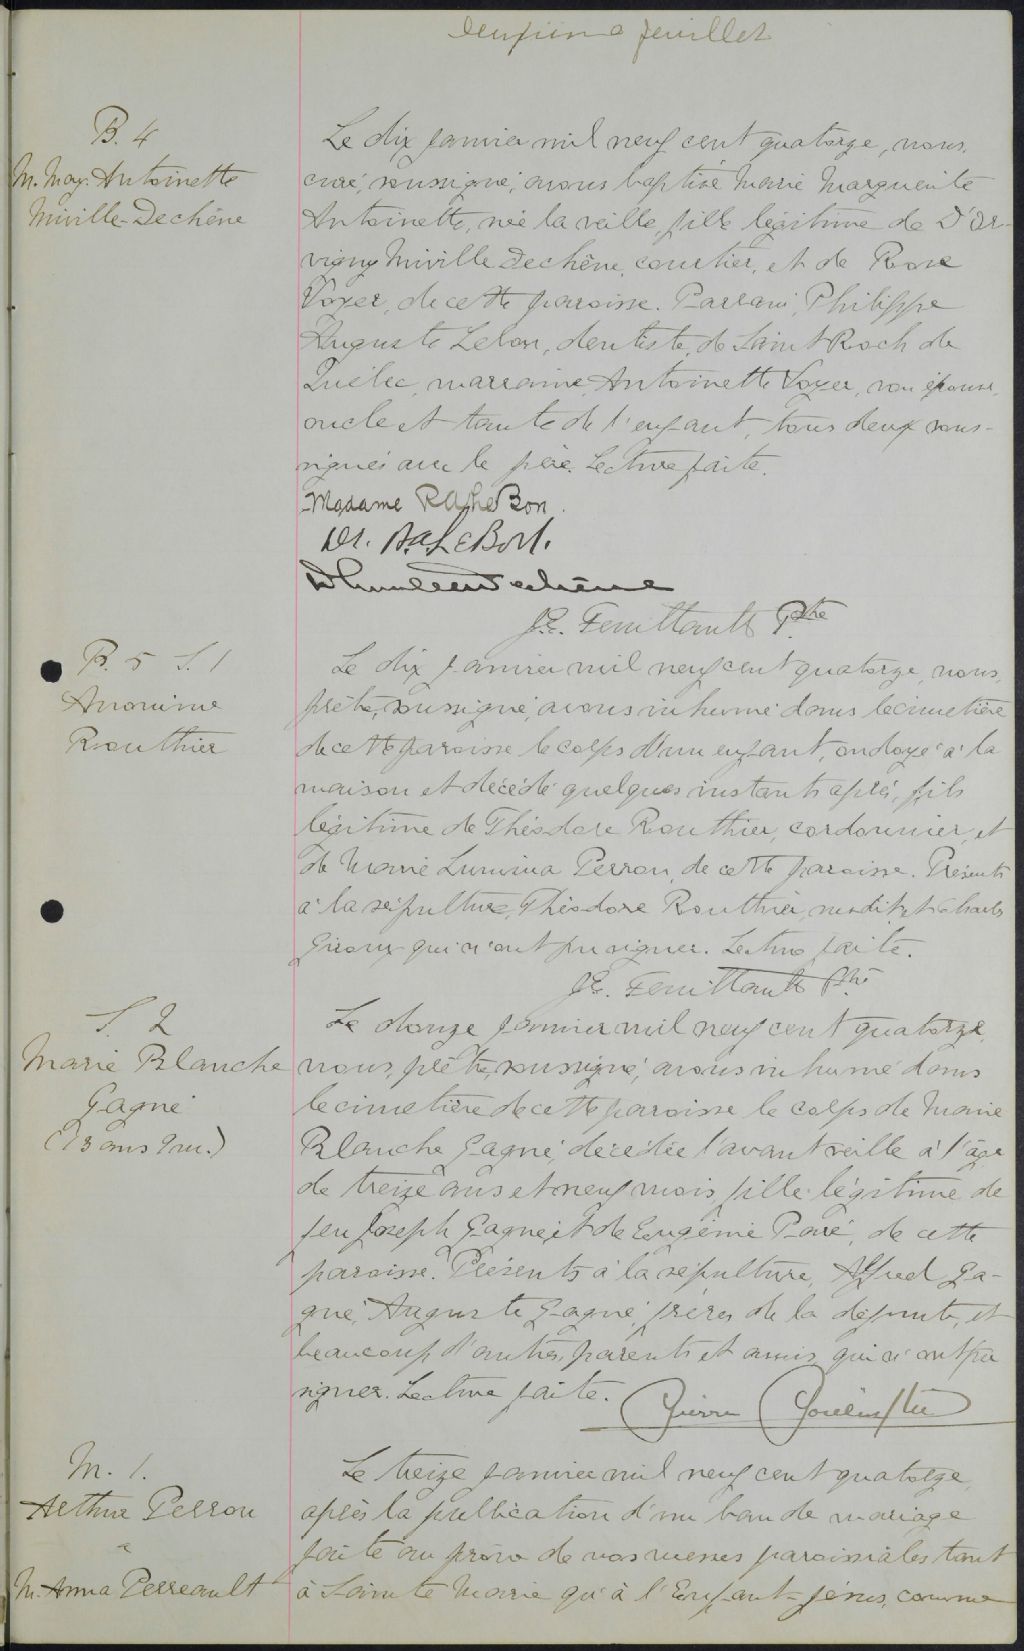 deuxième feuillet
B. 4
M. Marg. Antoinette
Miville-Dechêne
Le dix janvier mil neuf cent quatorze, nous,
curé, soussigné, avons baptisé Marie Marguerite
Antoinette, née la veille, fille légitime de D'Or-
vigny Miville Dechêne, courtier, et de Rose
Voyer, de cette paroisse. Parrain, Philippe
Auguste Lebon, dentiste, de Saint Roch de
Québec, marraine, Antoinette Voyer, son épouse,
oncle et tante de l'enfant, tous deux sous-
signés avec le père. Lecture faite.
Madame LeBon.
Dr. LeBon.
Dechêne
J.E. Feuiltault Ptre
B. 5 S. 1
Anonime
Routhier
Le dix janvier mil neuf cent quatorze, nous,
prêtre, soussigné, avons inhumé dans le cimetière
de cette paroisse le corps d'un enfant, ondoyé à la
maison et décédé quelques instants après, fils
légitime de Théodore Routhier, cordonnier, et
de Marie Lumina Perron, de cette paroisse. Présents
à la sépulture, Théodore Routhier, susdit, et Charles
Giroux qui n'ont pu signer. Lecture faite.
J.E. Feuiltault Ptre
S. 2
Marie Blanche
Gagné
(13 ans 9 m.)
Le douze janvier mil neuf cent quatorze,
nous, prêtre, soussigné, avons inhumé dans
le cimetière de cette paroisse le corps de Marie
Blanche Gagné, décédée l'avant veille à l'âge
de treize ans et neuf mois, fille légitime de
feu Joseph Gagné et de Eugénie Paré, de cette
paroisse. Présents à la sépulture, Alfred Ga-
gné, Auguste Gagné, frères de la défunte, et
beaucoup d'autres parents et amis qui n'ont pu
signer. Lecture faite.
Pierre Ptre
M. 1.
Arthur Perron
&
M. Anna Perreault
Le treize janvier mil neuf cent quatorze,
après la publication d'un ban de mariage
faite au prône de nos messes paroissiales tant
à Sainte Marie qu'à l'Enfant-Jésus, comme